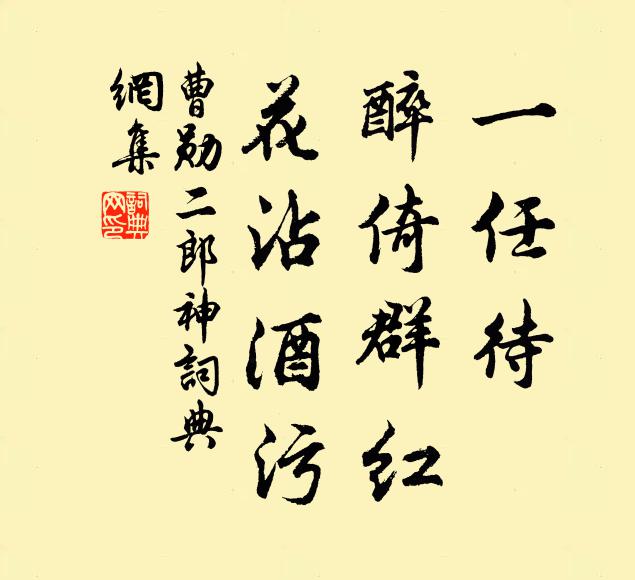 一任待
醉倚群红
花沾酒污
曹勋二郎神詞典
網集
詞典网印